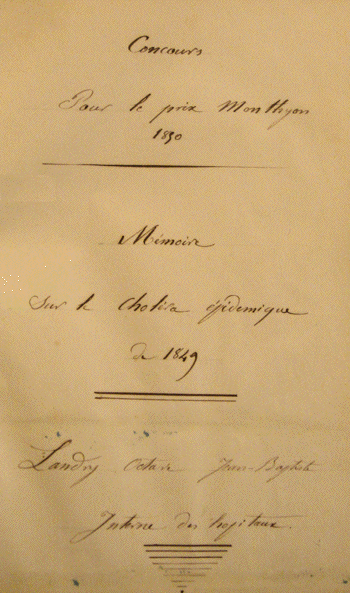 Concours
Pour le prix Monthyon
1850
Mémoire
Sur le choléra épidemique
de 1849
Landry Octave Jean-Baptiste
Interne des hopitaux.